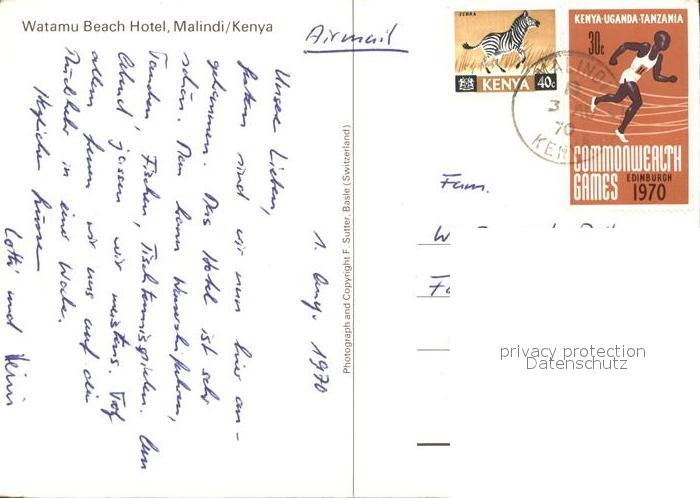 Watamu Beach Hotel, Malindi/Kenya
Airmail
1. Aug. 1970
Unsere Lieben,
sind wir nun hier an-
gekommen. Das Hotel ist sehr
schön. Man kann Wasserskifahren,
Tauchen, Fischen, Tischtennisspielen. Am
Abend jassen wir meistens. Trotz
allem freuen wir uns auf die
Rückkehr in einer Woche.
Herzliche Grüsse
Lotti und Heini
Photograph and Copyright F. Sutter, Basle (Switzerland)
ZEBRA
KENYA 40c
KENYA·UGANDA·TANZANIA
30c
COMMONWEALTH
GAMES EDINBURGH
1970
MALINDI
3
70
KENYA
Fam.
privacy protection
Datenschutz